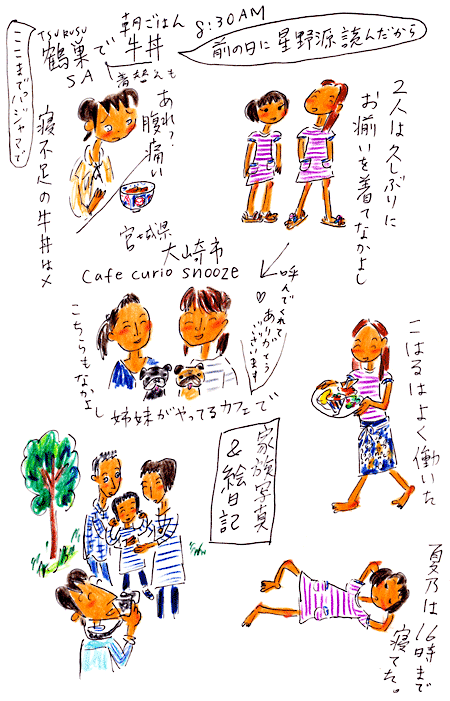 8:30AM
朝ごはん
TSURUSU
鶴巣で牛丼
SA
着替えも
前の日に星野源読んだから
ここまでパジャマで
あれ?
腹痛い
寝不足の牛丼は×
2人は久しぶりに
お揃いを着てなかよし
宮城県
大崎市
cafe curio snooze
呼んでくれて
ありがとう
ございます
こちらもなかよし
姉妹がやってるカフェで
こはるはよく働いた
家族写真
&絵日記
夏乃は16時まで
寝てた。